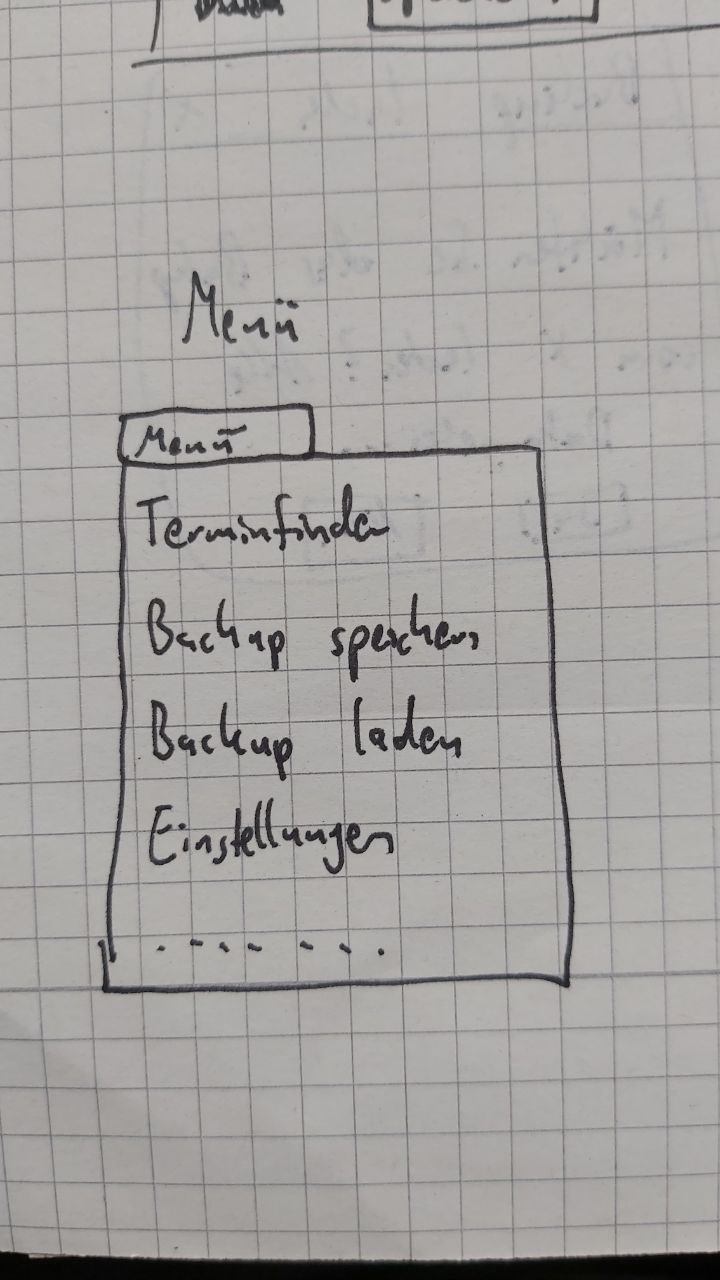 Menü
Menü
Terminfinder
Backup speichern
Backup laden
Einstellungen
.......